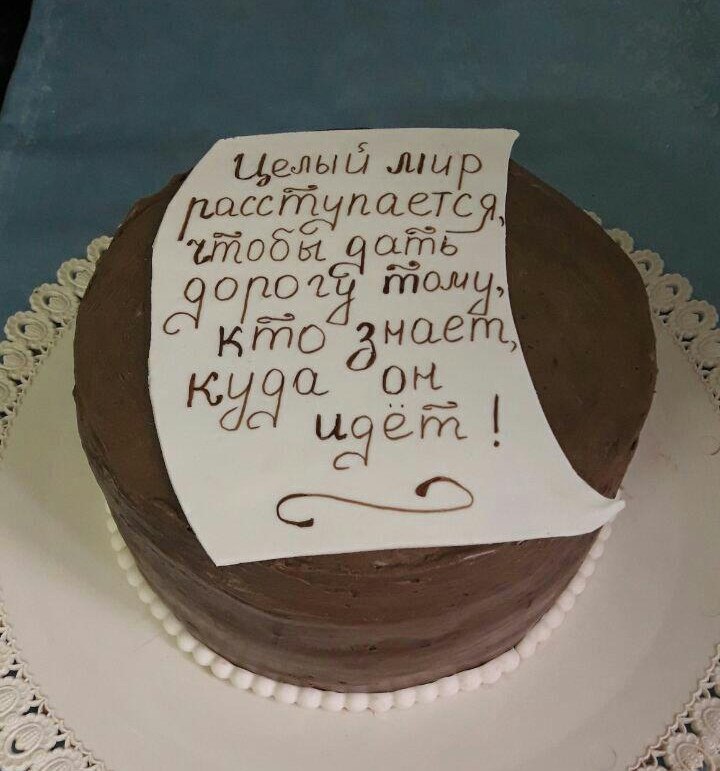 Целый мир
расступается,
чтобы дать
дорогу тому,
кто знает,
куда он
идёт!